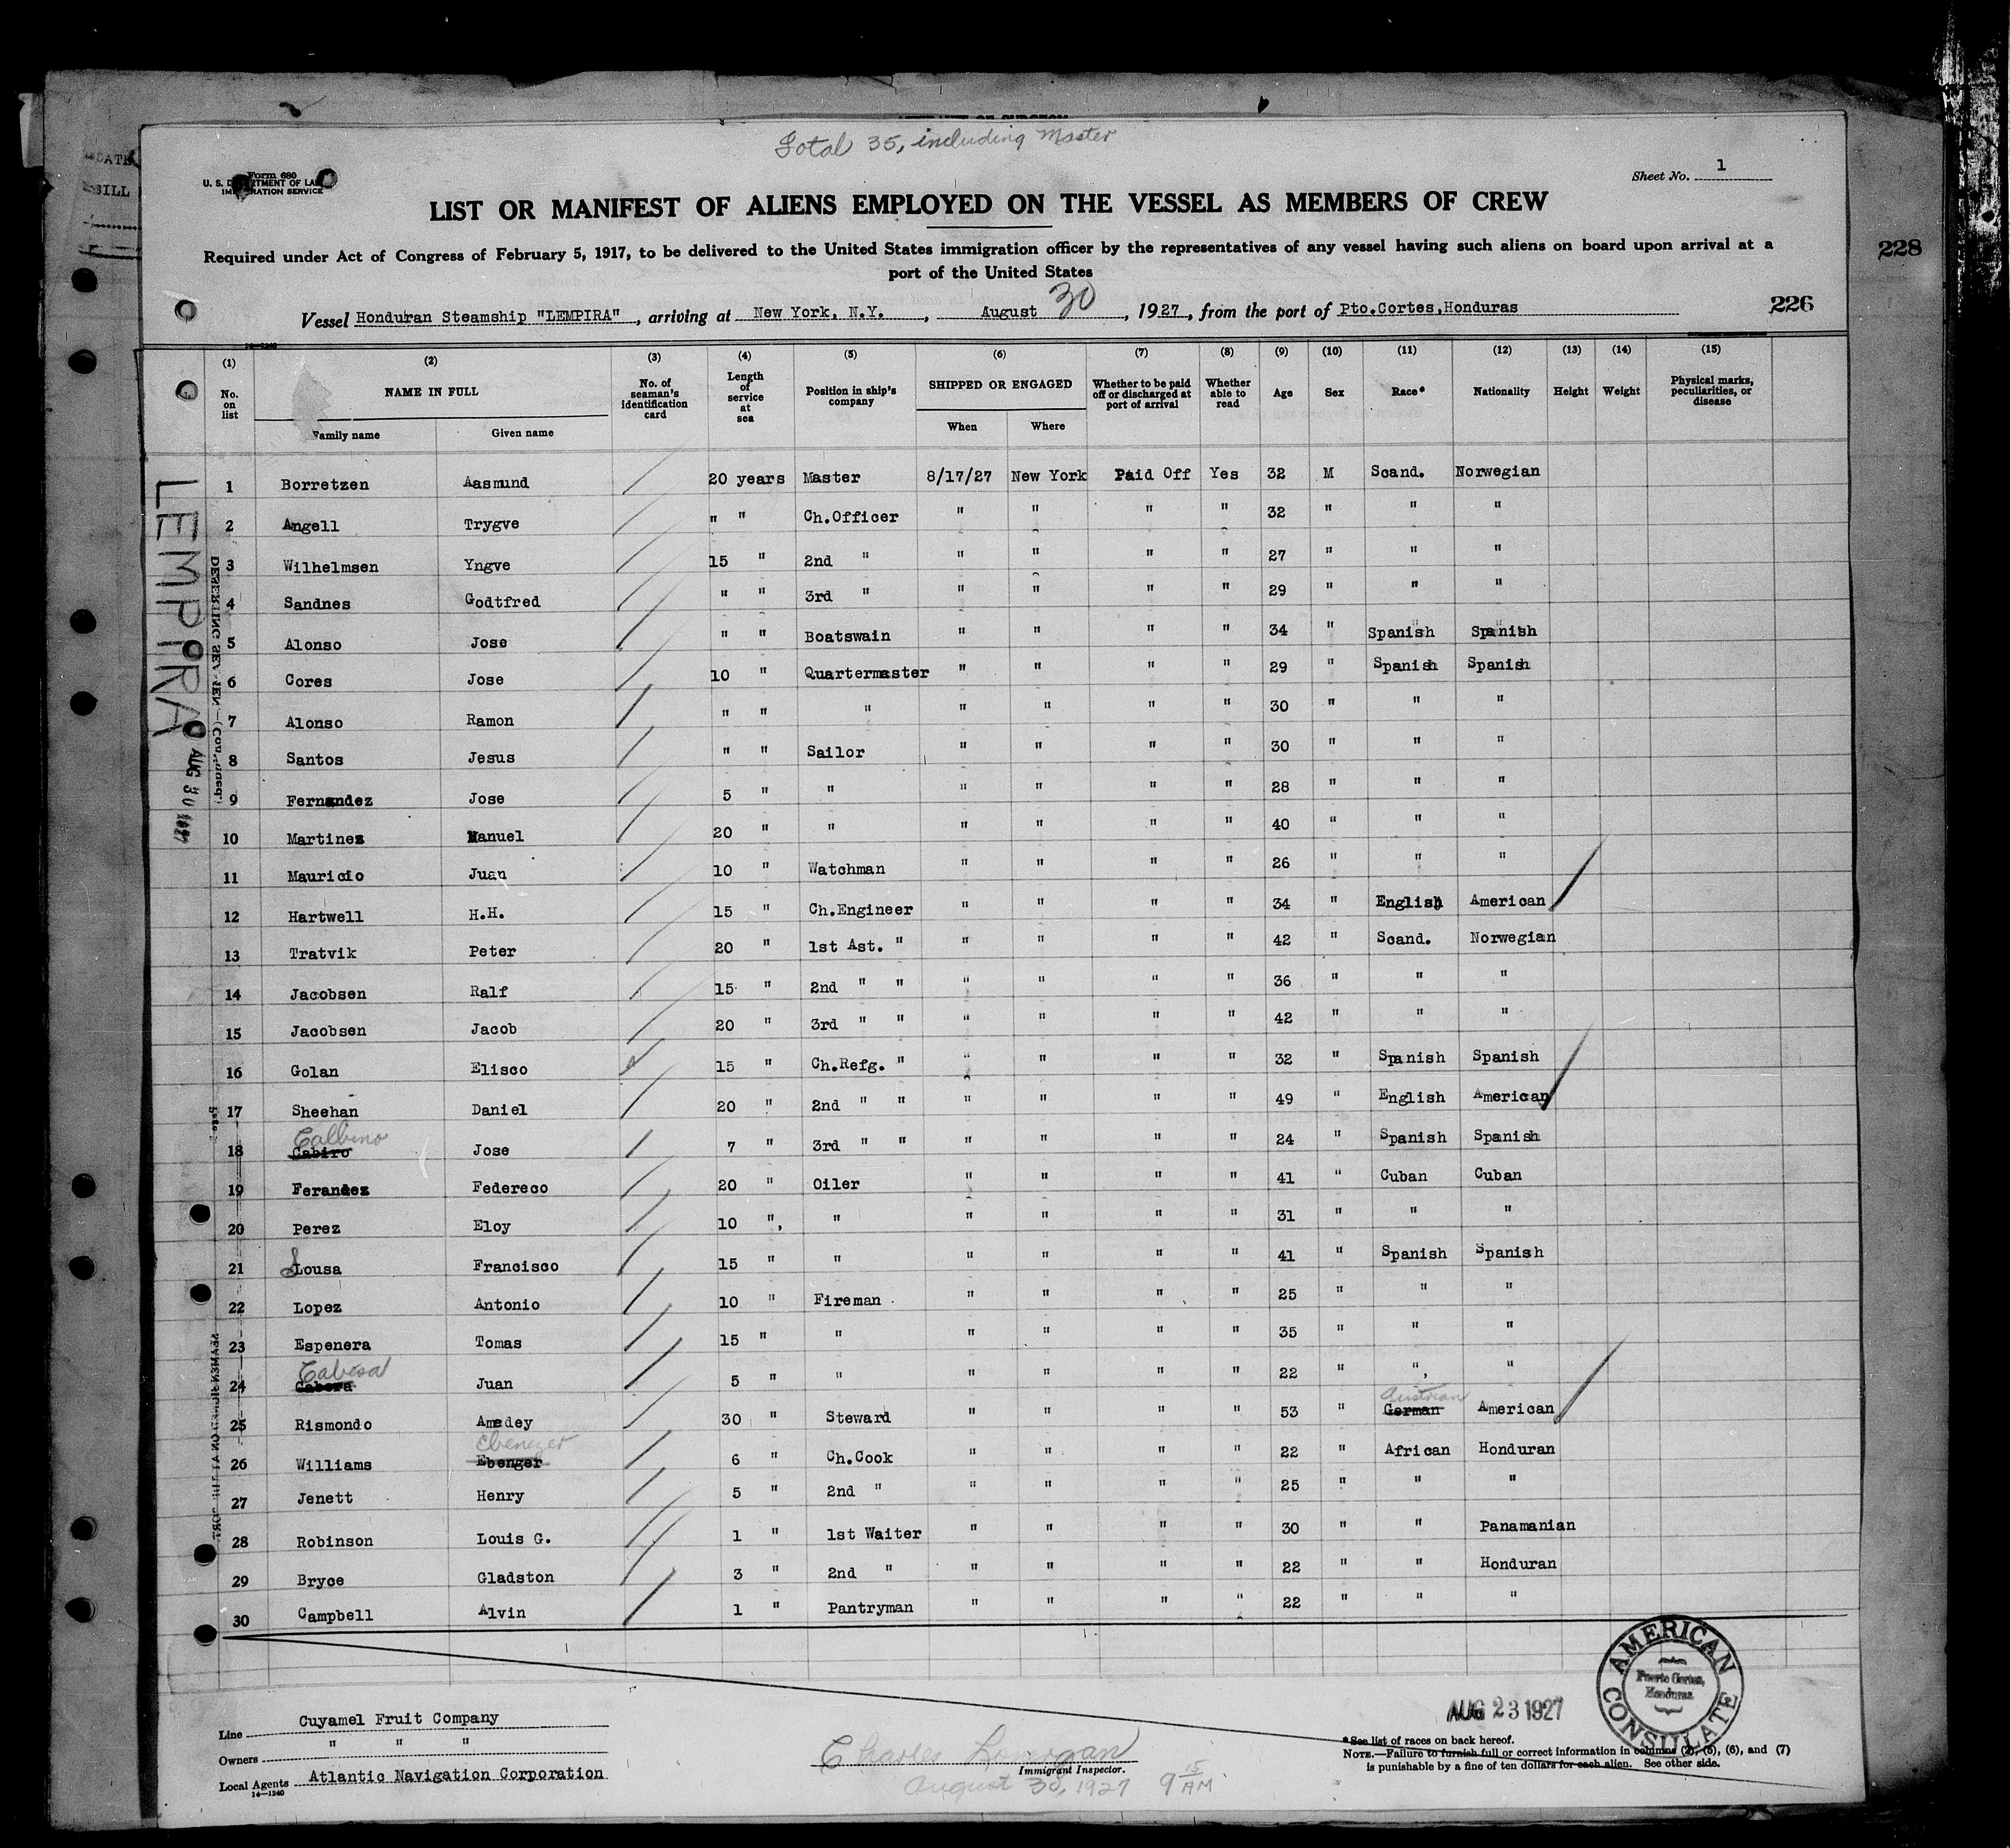 Total 35, including Master
Form 680
U. S. DEPARTMENT OF LABOR
IMMIGRATION SERVICE
Sheet No. 1
LIST OR MANIFEST OF ALIENS EMPLOYED ON THE VESSEL AS MEMBERS OF CREW
Required under Act of Congress of February 5, 1917, to be delivered to the United States immigration officer by the representatives of any vessel having such aliens on board upon arrival at a
port of the United States
228
226
Vessel Honduran Steamship "LEMPIRA", arriving at New York, N.Y., August 30, 1927, from the port of Pto.Cortes,Honduras
14—1240
(1) (2) (3) (4) (5) (6) (7) (8) (9) (10) (11) (12) (13) (14) (15)
No. on list NAME IN FULL No. of seaman's identification card Length of service at sea Position in ship's company SHIPPED OR ENGAGED Whether to be paid off or discharged at port of arrival Whether able to read Age Sex Race* Nationality Height Weight Physical marks, peculiarities, or disease
Family name Given name When Where
1 Borretzen Aasmund 20 years Master 8/17/27 New York Paid Off Yes 32 M Scand. Norwegian
2 Angell Trygve " " Ch.Officer " " " " 32 " " "
3 Wilhelmsen Yngve 15 " 2nd " " " " " 27 " " "
4 Sandnes Godtfred " " 3rd " " " " " 29 " " "
5 Alonso Jose " " Boatswain " " " " 34 " Spanish Spanish
6 Cores Jose 10 " Quartermaster " " " " 29 " Spanish Spanish
7 Alonso Ramon " " " " " " " 30 " " "
8 Santos Jesus " " Sailor " " " " 30 " " "
9 Fernandez Jose 5 " " " " " " 28 " " "
10 Martinez Manuel 20 " " " " " " 40 " " "
11 Mauricio Juan 10 " Watchman " " " " 26 " " "
12 Hartwell H.H. 15 " Ch.Engineer " " " " 34 " English American
13 Tratvik Peter 20 " 1st Ast. " " " " " 42 " Scand. Norwegian
14 Jacobsen Ralf 15 " 2nd " " " " " " 36 " " "
15 Jacobsen Jacob 20 " 3rd " " " " " " 42 " " "
16 Golan Elisco 15 " Ch.Refg. " " " " " 32 " Spanish Spanish
17 Sheehan Daniel 20 " 2nd " " " " " " 49 " English American
Calbino
18 Cabiro Jose 7 " 3rd " " " " " " 24 " Spanish Spanish
19 Ferandez Federeco 20 " Oiler " " " " 41 " Cuban Cuban
20 Perez Eloy 10 ", " " " " " 31 " " "
21 Lousa Francisco 15 " " " " " " 41 " Spanish Spanish
22 Lopez Antonio 10 " Fireman " " " " 25 " " "
23 Espenera Tomas 15 " " " " " " 35 " " "
Cabesa
24 Cabera Juan 5 " " " " " " 22 " " "
Austrian
25 Rismondo Amedey 30 " Steward " " " " 53 " German American
Ebenezer
26 Williams Ebenger 6 " Ch.Cook " " " " 22 " African Honduran
27 Jenett Henry 5 " 2nd " " " " " 25 " " "
28 Robinson Louis G. 1 " 1st Waiter " " " " 30 " " Panamanian
29 Bryce Gladston 3 " 2nd " " " " " 22 " " Honduran
30 Campbell Alvin 1 " Pantryman " " " " 22 " " "
LEMPIRA
AUG 30 1927
AMERICAN CONSULATE
Puerto Cortes,
Honduras
AUG 23 1927
Line Cuyamel Fruit Company
Owners " " "
Local Agents Atlantic Navigation Corporation
14—1240
Charles Lonergan
Immigrant Inspector.
August 30, 1927 9 15 AM
*See list of races on back hereof.
NOTE.—Failure to furnish full or correct information in columns (2), (5), (6), and (7)
is punishable by a fine of ten dollars for each alien. See other side.